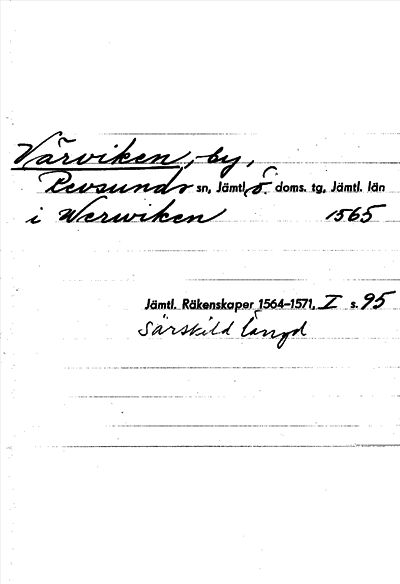 Värviken, by,
Revsunds sn, Jämtl. ö. doms. tg, Jämtl. län
i Werwiken 1565
Jämtl. Räkenskaper 1564–1571, I s. 95
Särskild längd